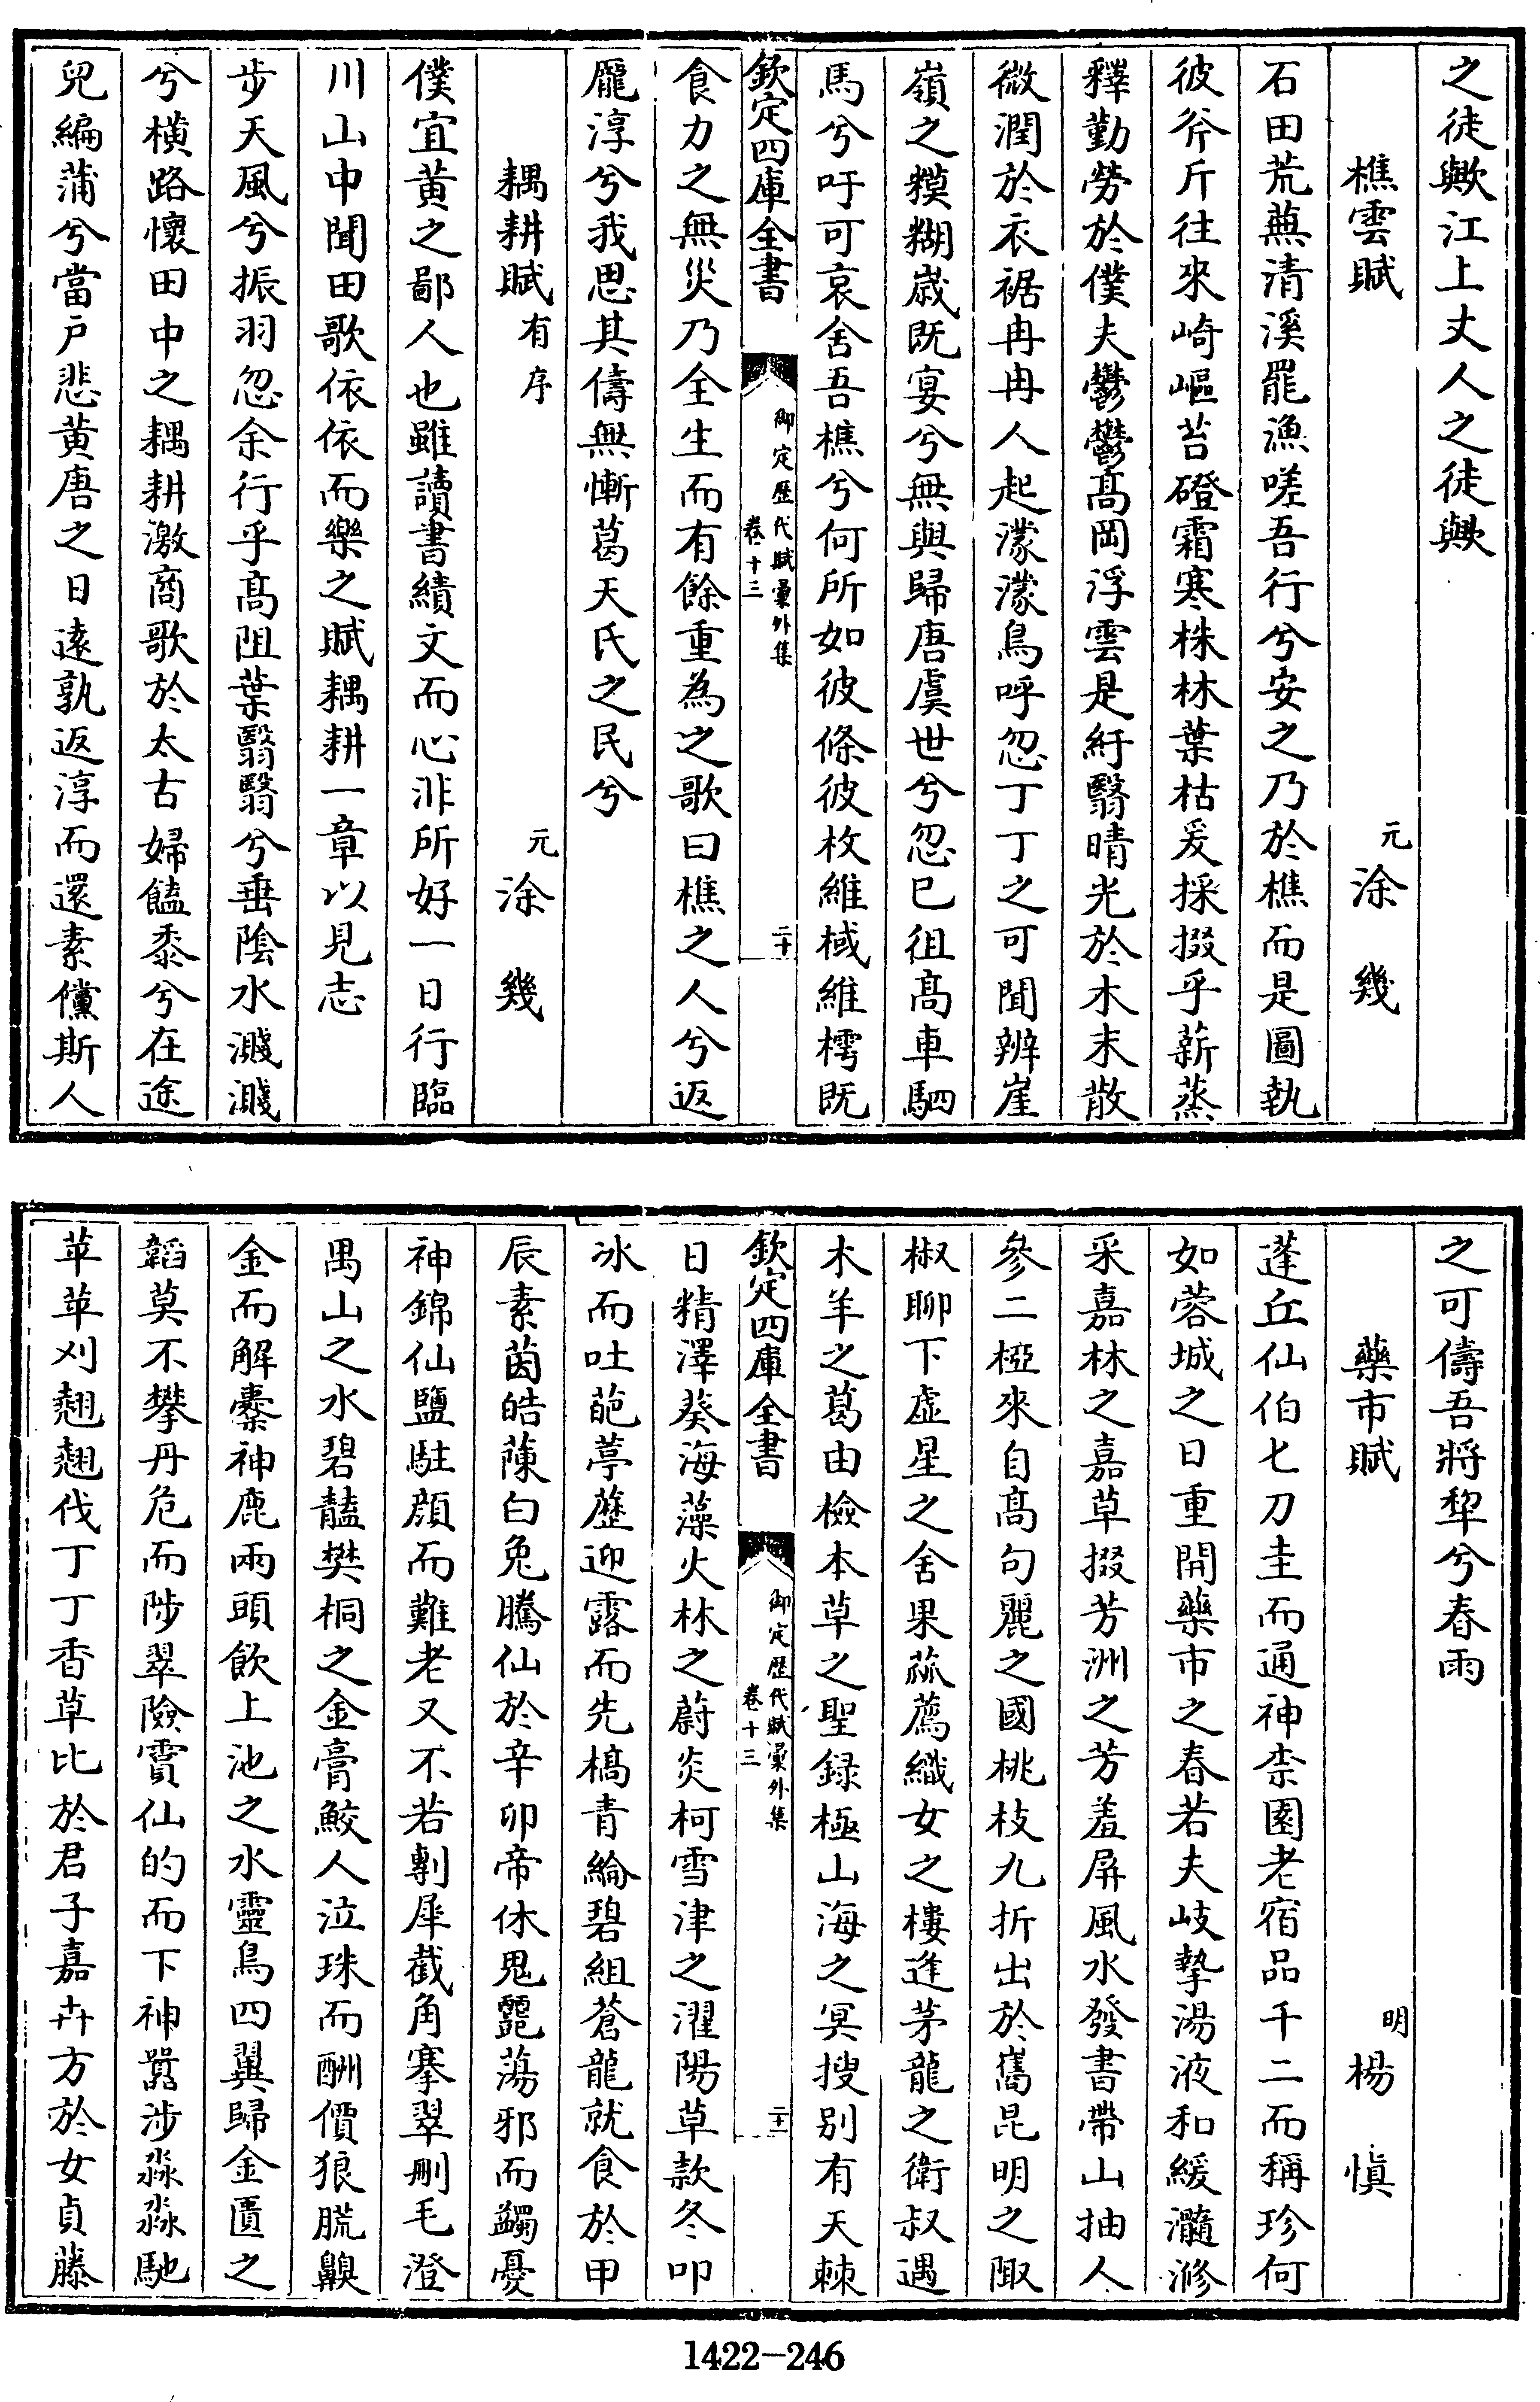 之徒歟江上丈人之徒歟
樵雲賦
元涂幾
石田荒蕪清溪罷漁嗟吾行兮安之乃於樵而是圖執
彼斧斤往來崎嶇苔磴霜寒株林葉枯爰採掇乎薪蒸
釋勤勞於僕夫鬱鬱髙岡浮雲是紆翳晴光於木末散
微潤於衣裾冉冉人起濛濛鳥呼忽丁丁之可聞辨崖
嶺之糢糊歳既宴兮無與歸唐虞世兮忽已徂髙車駟
馬兮吁可哀舍吾樵兮何所如彼條彼枚維棫維樗既
欽定四庫全書
御定歴代賦彚外集
卷十三
二十
食力之無災乃全生而有餘重為之歌曰樵之人兮返
厖淳兮我思其儔無慚葛天氏之民兮
耦耕賦有序
元涂幾
僕宜黄之鄙人也雖讀書績文而心非所好一日行臨
川山中聞田歌依依而樂之賦耦耕一章以見志
歩天風兮振羽忽余行乎髙阻葉翳翳兮垂陰水濺濺
兮横路懷田中之耦耕激商歌於太古婦饁黍兮在途
兒編蒲兮當戸悲黄唐之日逺孰返淳而還素儻斯人
之可儔吾將犂兮春雨
藥市賦
明楊慎
蓬丘仙伯七刀圭而通神柰園老宿品千二而稱珍何
如蓉城之日重開藥市之春若夫岐摯湯液和緩瀡滫
采嘉林之嘉草掇芳洲之芳羞屏風水發書帶山抽人
參二椏來自髙句麗之國桃枝九折出於嶲昆明之陬
椒聊下虚星之舍果蓏薦織女之樓逢茅龍之衛叔遇
木羊之葛由檢本草之聖録極山海之㝠搜别有天棘
欽定四庫全書
御定歴代賦彚外集
卷十三
二十一
日精澤葵海藻火林之蔚炎柯雪津之濯陽草款冬叩
冰而吐葩葶藶迎露而先槁青綸碧組蒼龍就食於甲
辰素茵皓蔯白兔騰仙於辛卯帝休鬼蓜蕩邪而蠲憂
神錦仙鹽駐顔而難老又不若剸犀截角搴翠刪毛澄
禺山之水碧䰟樊桐之金膏鮫人泣珠而酬價狼䐠䶎
金而解橐神鹿兩頭飲上池之水靈鳥四翼歸金匱之
韜莫不攀丹危而陟翠險賨仙的而下神嚣涉淼淼馳
苹苹刈翹翹伐丁丁香草比於君子嘉卉方於女貞藤
1422-246